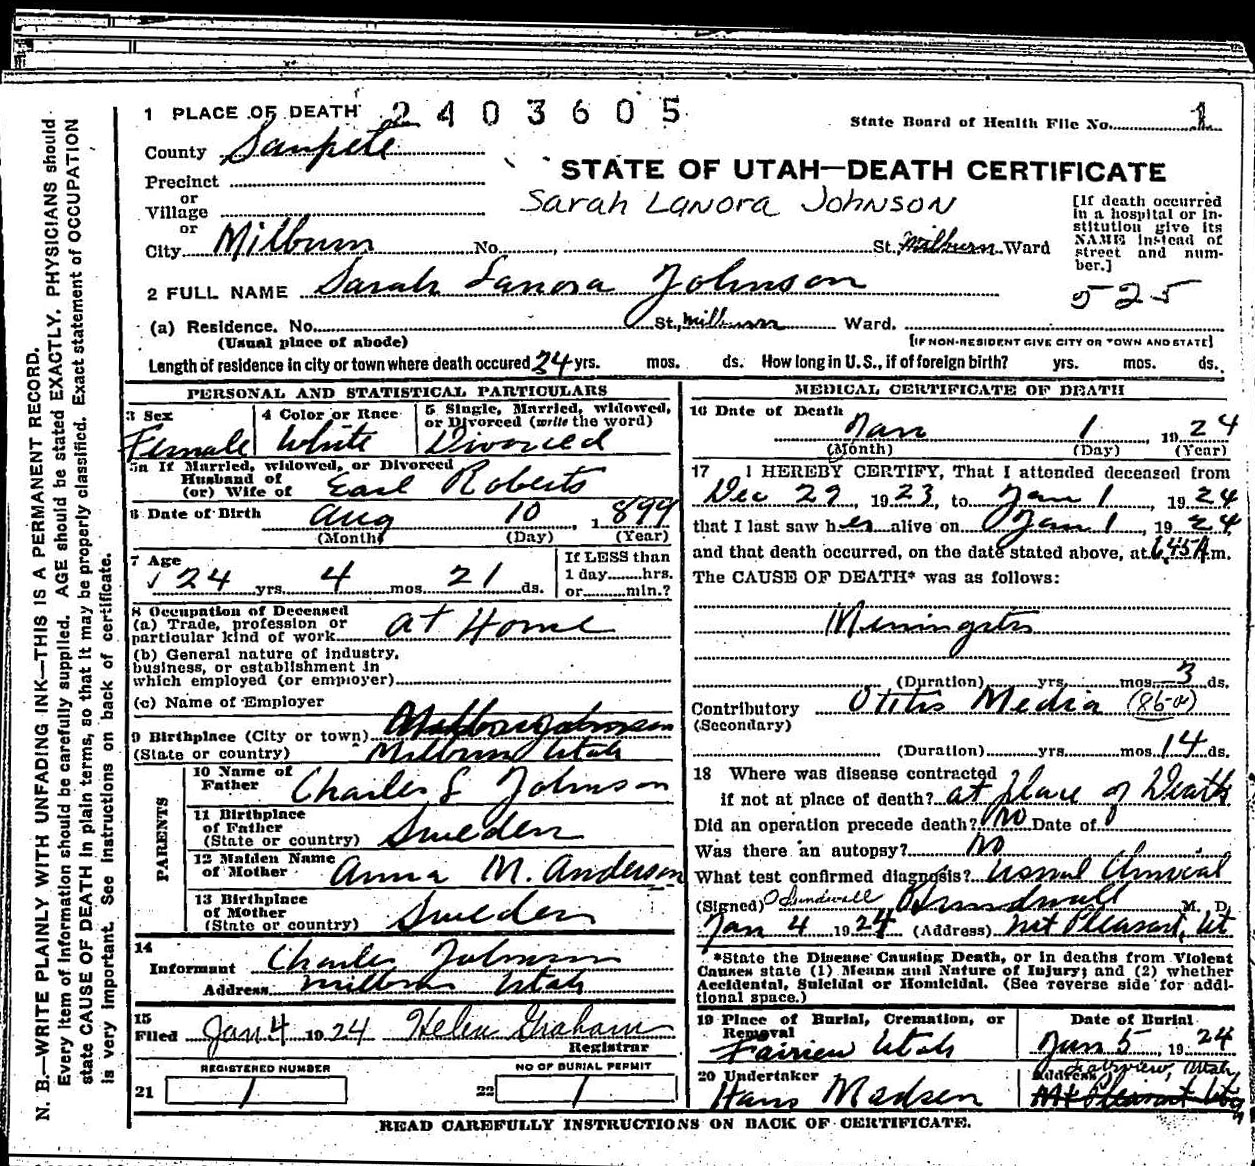 1 PLACE OF DEATH 2403605
State Board of Health File No. 1
County Sanpete
STATE OF UTAH—DEATH CERTIFICATE
Precinct
or
Village
or
Sarah Lanora Johnson
[If death occurred in a hospital or institution give its NAME instead of street and number.]
City Milburn No. St., Milburn Ward
2 FULL NAME Sarah Lanora Johnson
525
(a) Residence. No. St., Milburn Ward.
(Usual place of abode)
[IF NON-RESIDENT GIVE CITY OR TOWN AND STATE]
Length of residence in city or town where death occured 24 yrs. mos. ds. How long in U.S., if of foreign birth? yrs. mos. ds.
PERSONAL AND STATISTICAL PARTICULARS
3 Sex
Female
4 Color or Race
White
5 Single, Married, widowed, or Divorced (write the word)
Divorced
5a If Married, widowed, or Divorced
Husband of
(or) Wife of Earl Roberts
6 Date of Birth Aug 10, 1899
(Month) (Day) (Year)
7 Age
24 yrs. 4 mos. 21 ds.
If LESS than
1 day hrs.
or min.?
8 Occupation of Deceased
(a) Trade, profession or
particular kind of work At Home
(b) General nature of industry,
business, or establishment in
which employed (or employer)
(c) Name of Employer
9 Birthplace (City or town)
(State or country) Milburn Utah
PARENTS
10 Name of
Father Charles S Johnson
11 Birthplace
of Father
(State or country) Sweden
12 Maiden Name
of Mother Anna M. Anderson
13 Birthplace
of Mother
(State or country) Sweden
14
Informant Charles Johnson
Address Milburn Utah
15
Filed Jan 4 1924 Helen Graham
Registrar
REGISTERED NUMBER
21 1
NO OF BURIAL PERMIT
22 1
MEDICAL CERTIFICATE OF DEATH
16 Date of Death
Jan 1, 1924
(Month) (Day) (Year)
17 I HEREBY CERTIFY, That I attended deceased from
Dec 29, 1923, to Jan 1, 1924
that I last saw her alive on Jan 1, 1924,
and that death occurred, on the date stated above, at 6.45 A m.
The CAUSE OF DEATH* was as follows:
Meningitis
(Duration) yrs. mos. 3 ds.
Contributory Otitis Media (86a)
(Secondary)
(Duration) yrs. mos. 14 ds.
18 Where was disease contracted
if not at place of death? at place of Death
Did an operation precede death? No Date of 0
Was there an autopsy? No
What test confirmed diagnosis? Usual Clinical
(Signed) Sundwall M. D.
Jan 4 1924 (Address) Mt Pleasant, Ut
*State the Disease Causing Death, or in deaths from Violent
Causes state (1) Means and Nature of Injury; and (2) whether
Accidental, Suicidal or Homicidal. (See reverse side for additional space.)
19 Place of Burial, Cremation, or
Removal
Fairview Utah
Date of Burial
Jan 5, 1924
20 Undertaker
Hans Madsen
Address
Fairview, Utah
READ CAREFULLY INSTRUCTIONS ON BACK OF CERTIFICATE.
N. B.—WRITE PLAINLY WITH UNFADING INK—THIS IS A PERMANENT RECORD.
Every item of information should be carefully supplied. AGE should be stated EXACTLY. PHYSICIANS should
state CAUSE OF DEATH in plain terms, so that it may be properly classified. Exact statement of OCCUPATION
is very important. See instructions on back of certificate.